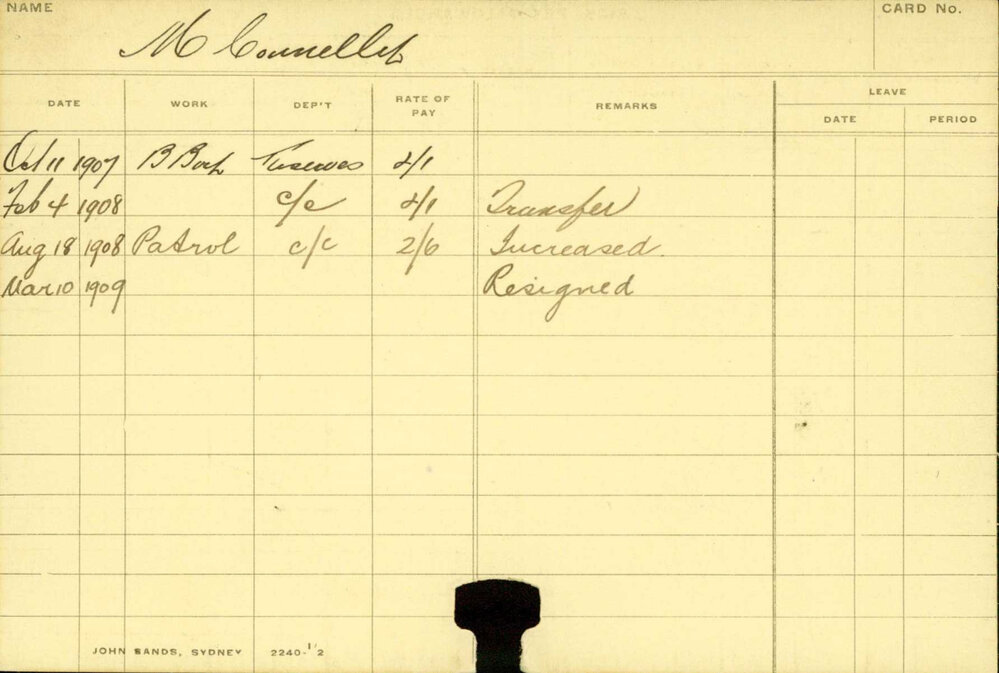 NAME
CARD No.
M Connellet
DATE WORK DEP'T RATE OF PAY REMARKS LEAVE
DATE PERIOD
Oct 11 1907 B Boy Reserves 2/1
Feb 4 1908 c/c 2/1 Transfer
Aug 18 1908 Patrol c/c 2/6 Increased.
Mar 10 1909 Resigned
JOHN SANDS, SYDNEY 2240-1/2